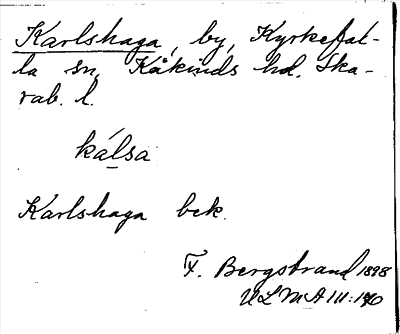 Karlshaga, by, Kyrkefal-
la sn, Kåkinds hd. Ska-
rab. l.
kálsa
Karlshaga bek.
F. Bergstrand 1898
ULMA 111:140